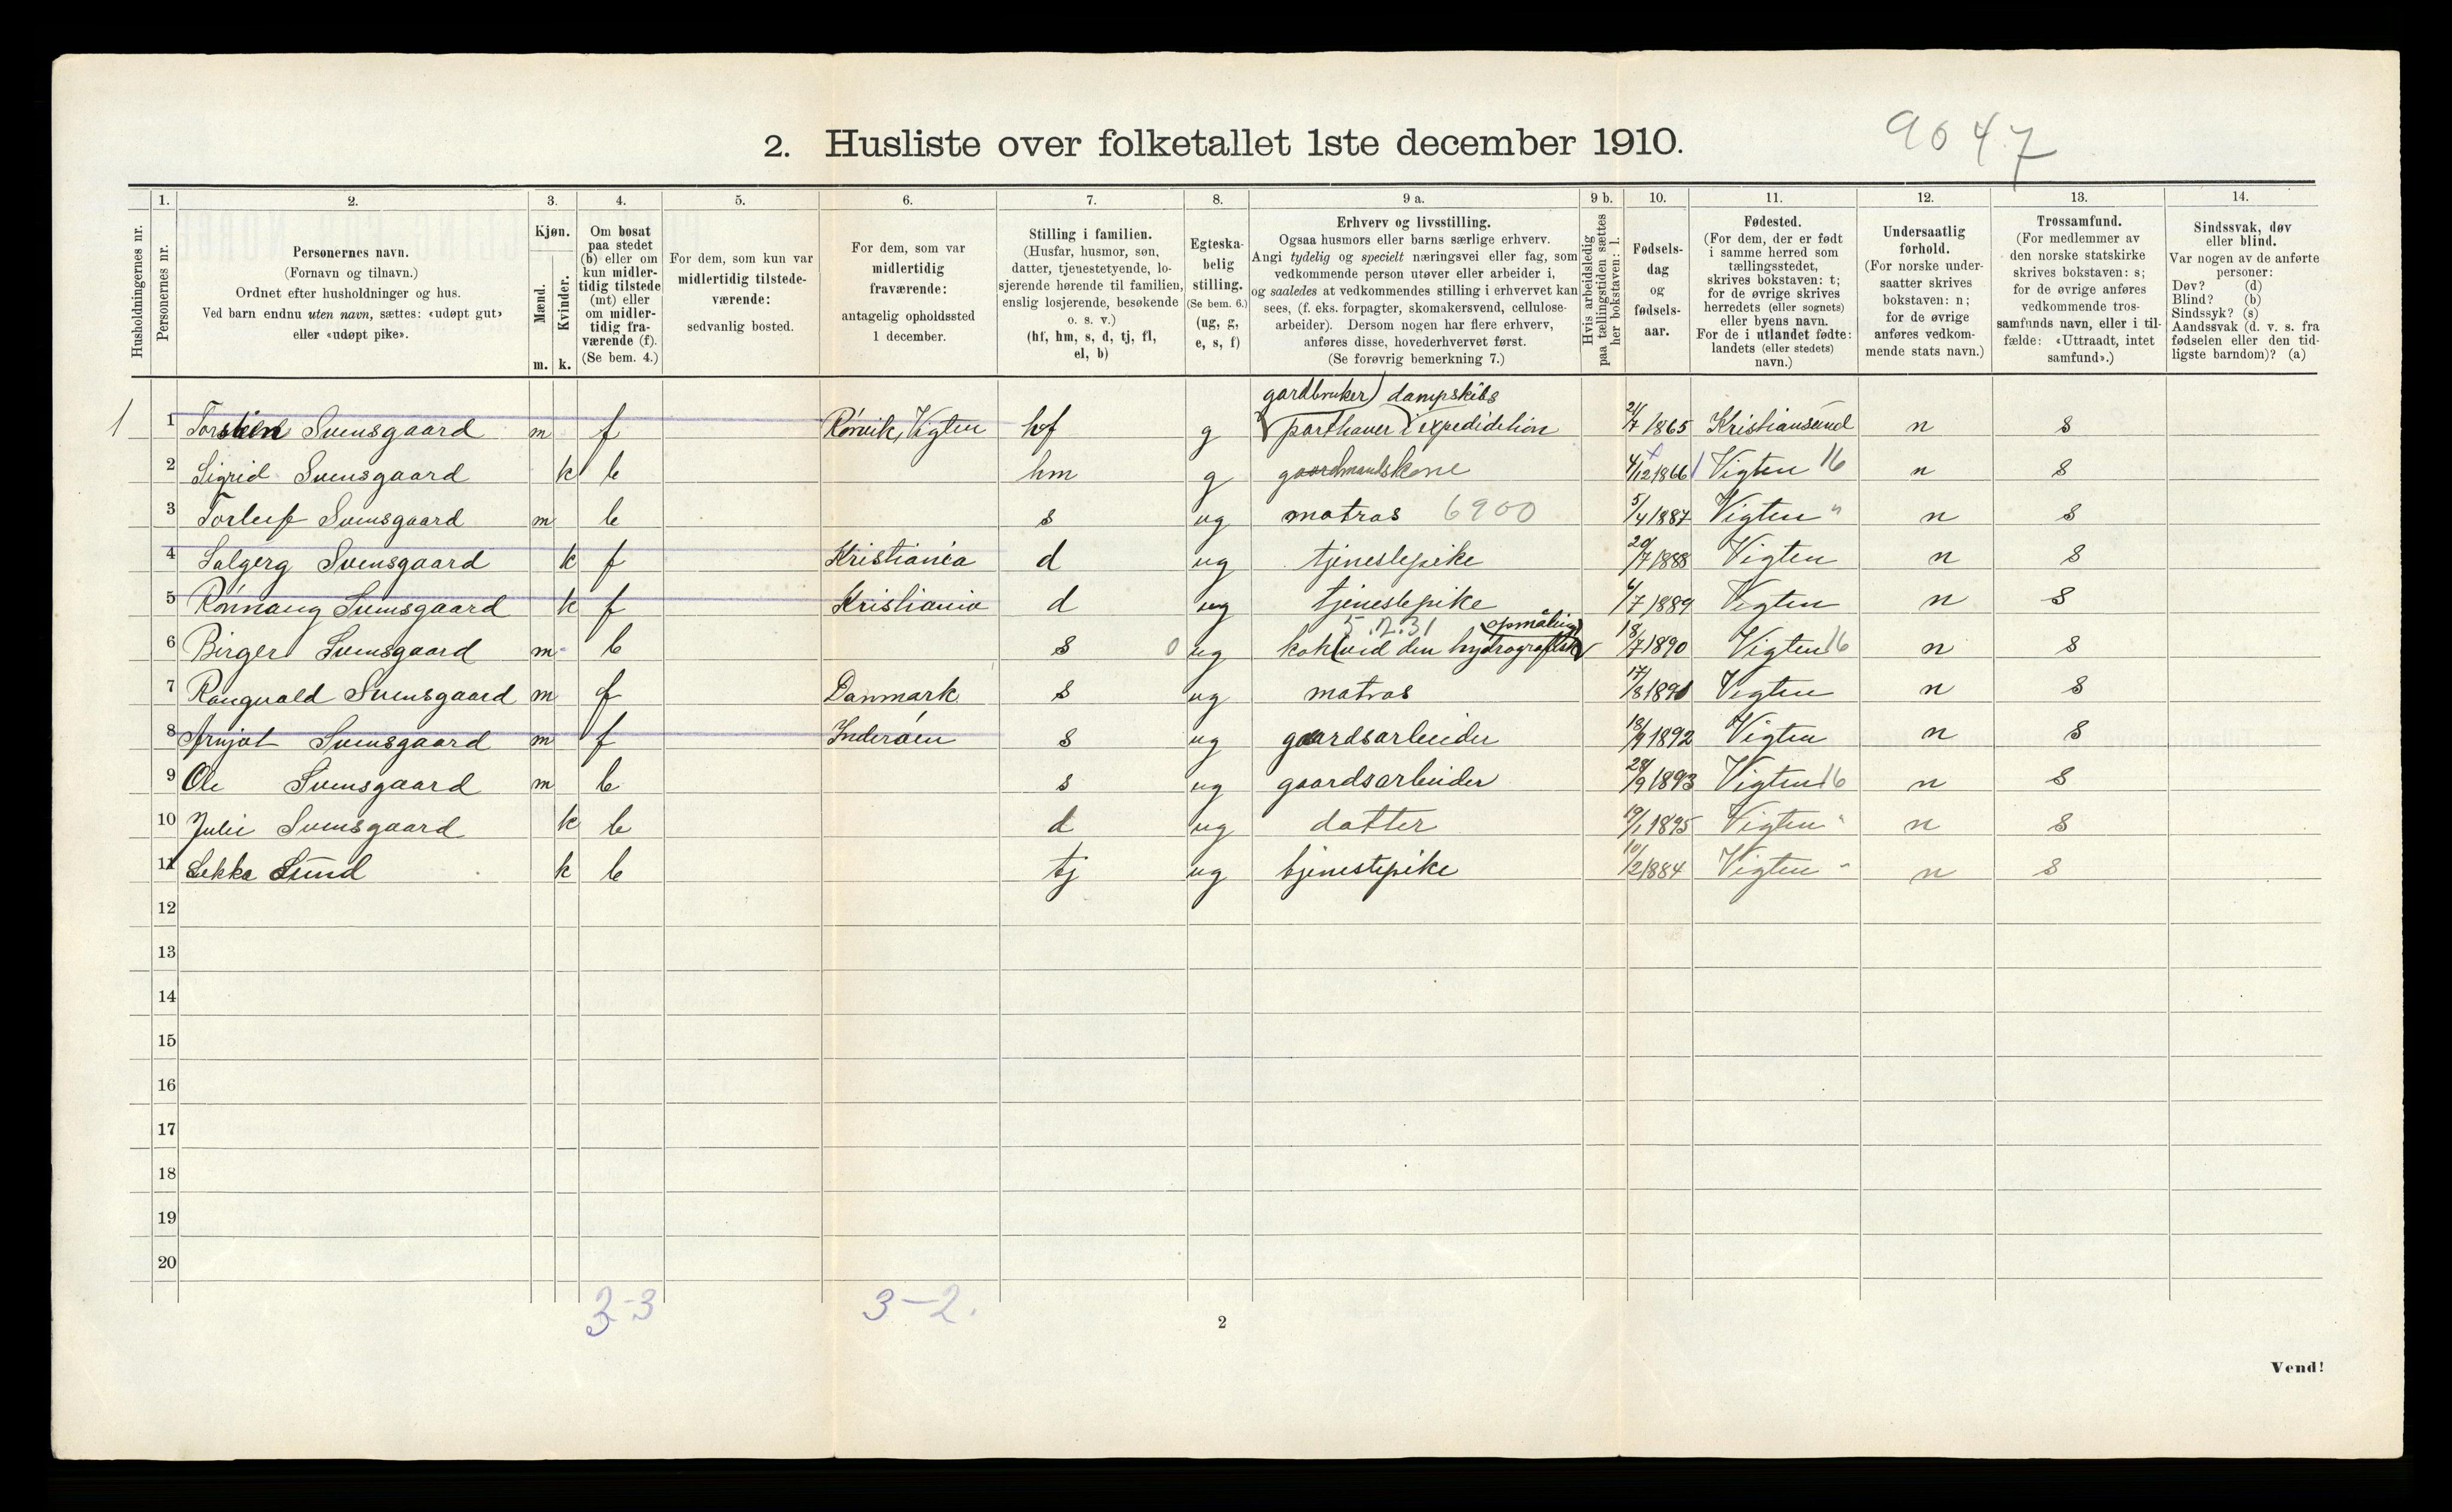 2. Husliste over folketallet 1ste december 1910.
9047
Husholdningernes nr.
1.
Personernes nr.
2.
Personernes navn.
(Fornavn og tilnavn.)
Ordnet efter husholdninger og hus.
Ved barn endnu uten navn, sættes: «udøpt gut»
eller «udøpt pike».
3.
Kjøn.
Mænd.
m.
Kvinder.
k.
4.
Om bosat
paa stedet
(b) eller om
kun midler-
tidig tilstede
(mt) eller
om midler-
tidig fra-
værende (f).
(Se bem. 4.)
5.
For dem, som kun var
midlertidig tilstede-
værende:
sedvanlig bosted.
6.
For dem, som var
midlertidig
fraværende:
antagelig opholdssted
1 december.
7.
Stilling i familien.
(Husfar, husmor, søn,
datter, tjenestetyende, lo-
sjerende hørende til familien,
enslig losjerende, besøkende
o. s. v.)
(hf, hm, s, d, tj, fl,
el, b)
8.
Egteska-
belig
stilling.
(Se bem. 6.)
(ug, g,
e, s, f)
9 a.
Erhverv og livsstilling.
Ogsaa husmors eller barns særlige erhverv.
Angi tydelig og specielt næringsvei eller fag, som
vedkommende person utøver eller arbeider i,
og saaledes at vedkommendes stilling i erhvervet kan
sees, (f. eks. forpagter, skomakersvend, cellulose-
arbeider). Dersom nogen har flere erhverv,
anføres disse, hovederhvervet først.
(Se forøvrig bemerkning 7.)
9 b.
Hvis arbeidsledig
paa tællingstiden sættes
her bokstaven: l.
10.
Fødsels-
dag
og
fødsels-
aar.
11.
Fødested.
(For dem, der er født
i samme herred som
tællingsstedet,
skrives bokstaven: t;
for de øvrige skrives
herredets (eller sognets)
eller byens navn.
For de i utlandet fødte:
landets (eller stedets)
navn.)
12.
Undersaatlig
forhold.
(For norske under-
saatter skrives
bokstaven: n;
for de øvrige
anføres vedkom-
mende stats navn.)
13.
Trossamfund.
(For medlemmer av
den norske statskirke
skrives bokstaven: s;
for de øvrige anføres
vedkommende tros-
samfunds navn, eller i til-
fælde: «Uttraadt, intet
samfund».)
14.
Sindssvak, døv
eller blind.
Var nogen av de anførte
personer:
Døv? (d)
Blind? (b)
Sindssyk? (s)
Aandssvak (d. v. s. fra
fødselen eller den tid-
ligste barndom)? (a)
gardbruker) dampskibs
1 1 Svensgaard m f Rørvik, Vigten hf g parthaver i expedidition 21/7 1865 Kristiansund n s
2 Sigrid Svensgaard k b hm g gaardmandskone 4/12 1866 Vigten 16 n s
3 Torleif Svensgaard m b s ug matros 6900 5/4 1887 Vigten " n s
4 Salgerg Svensgaard k f Kristiania d ug tjenestepike 20/7 1888 Vigten n s
5 Rønnaug Svensgaard k f Kristiania d ug tjenestepike 6/7 1889 Vigten n s
5.12.31 opmåling)
6 Birger Svensgaard m b s 0 ug kok (ved den hydrografisk 18/7 1890 Vigten 16 n s
7 Rangvald Svensgaard m f Danmark s ug matros 17/8 1891 Vigten n s
8 Arnjot Svensgaard m f Inderøen s ug gaardsarbeider 18/9 1892 Vigten n s
9 Ole Svensgaard m b s ug gaardsarbeider 28/9 1893 Vigten 16 n s
10 Julie Svensgaard k b d ug datter 19/1 1895 Vigten " n s
11 Lekka Lund k b tj ug tjenestepike 10/2 1884 Vigten " n s
12
13
14
15
16
17
18
19
20
3-3 3-2.
2
Vend!